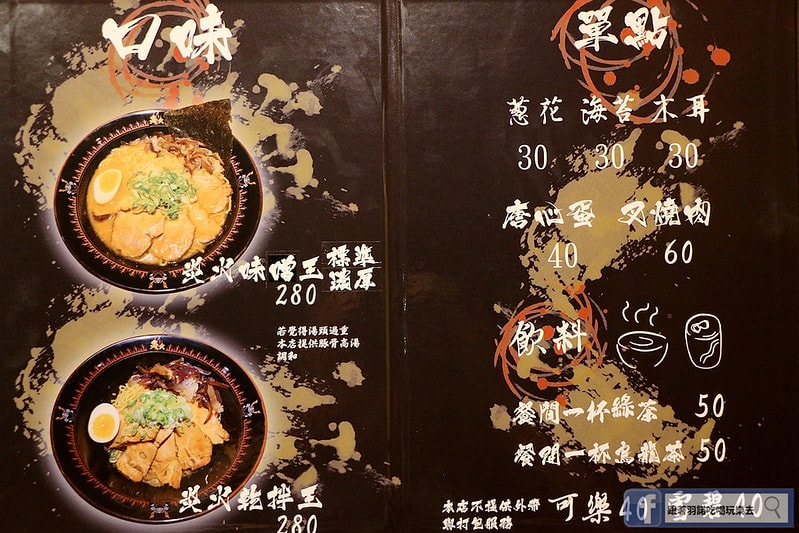 口味
炎火味噌王 標準 濃厚
280
若覺得湯頭過重
本店提供豚骨高湯
調和
炎火乾拌王
280
單點
蔥花 海苔 木耳
30 30 30
唐心蛋 叉燒肉
40 60
飲料
餐間一杯綠茶 50
餐間一杯烏龍茶 50
本店不提供外帶
與打包服務
可樂 40 雪碧 40
跟著羽諾吃喝玩樂去